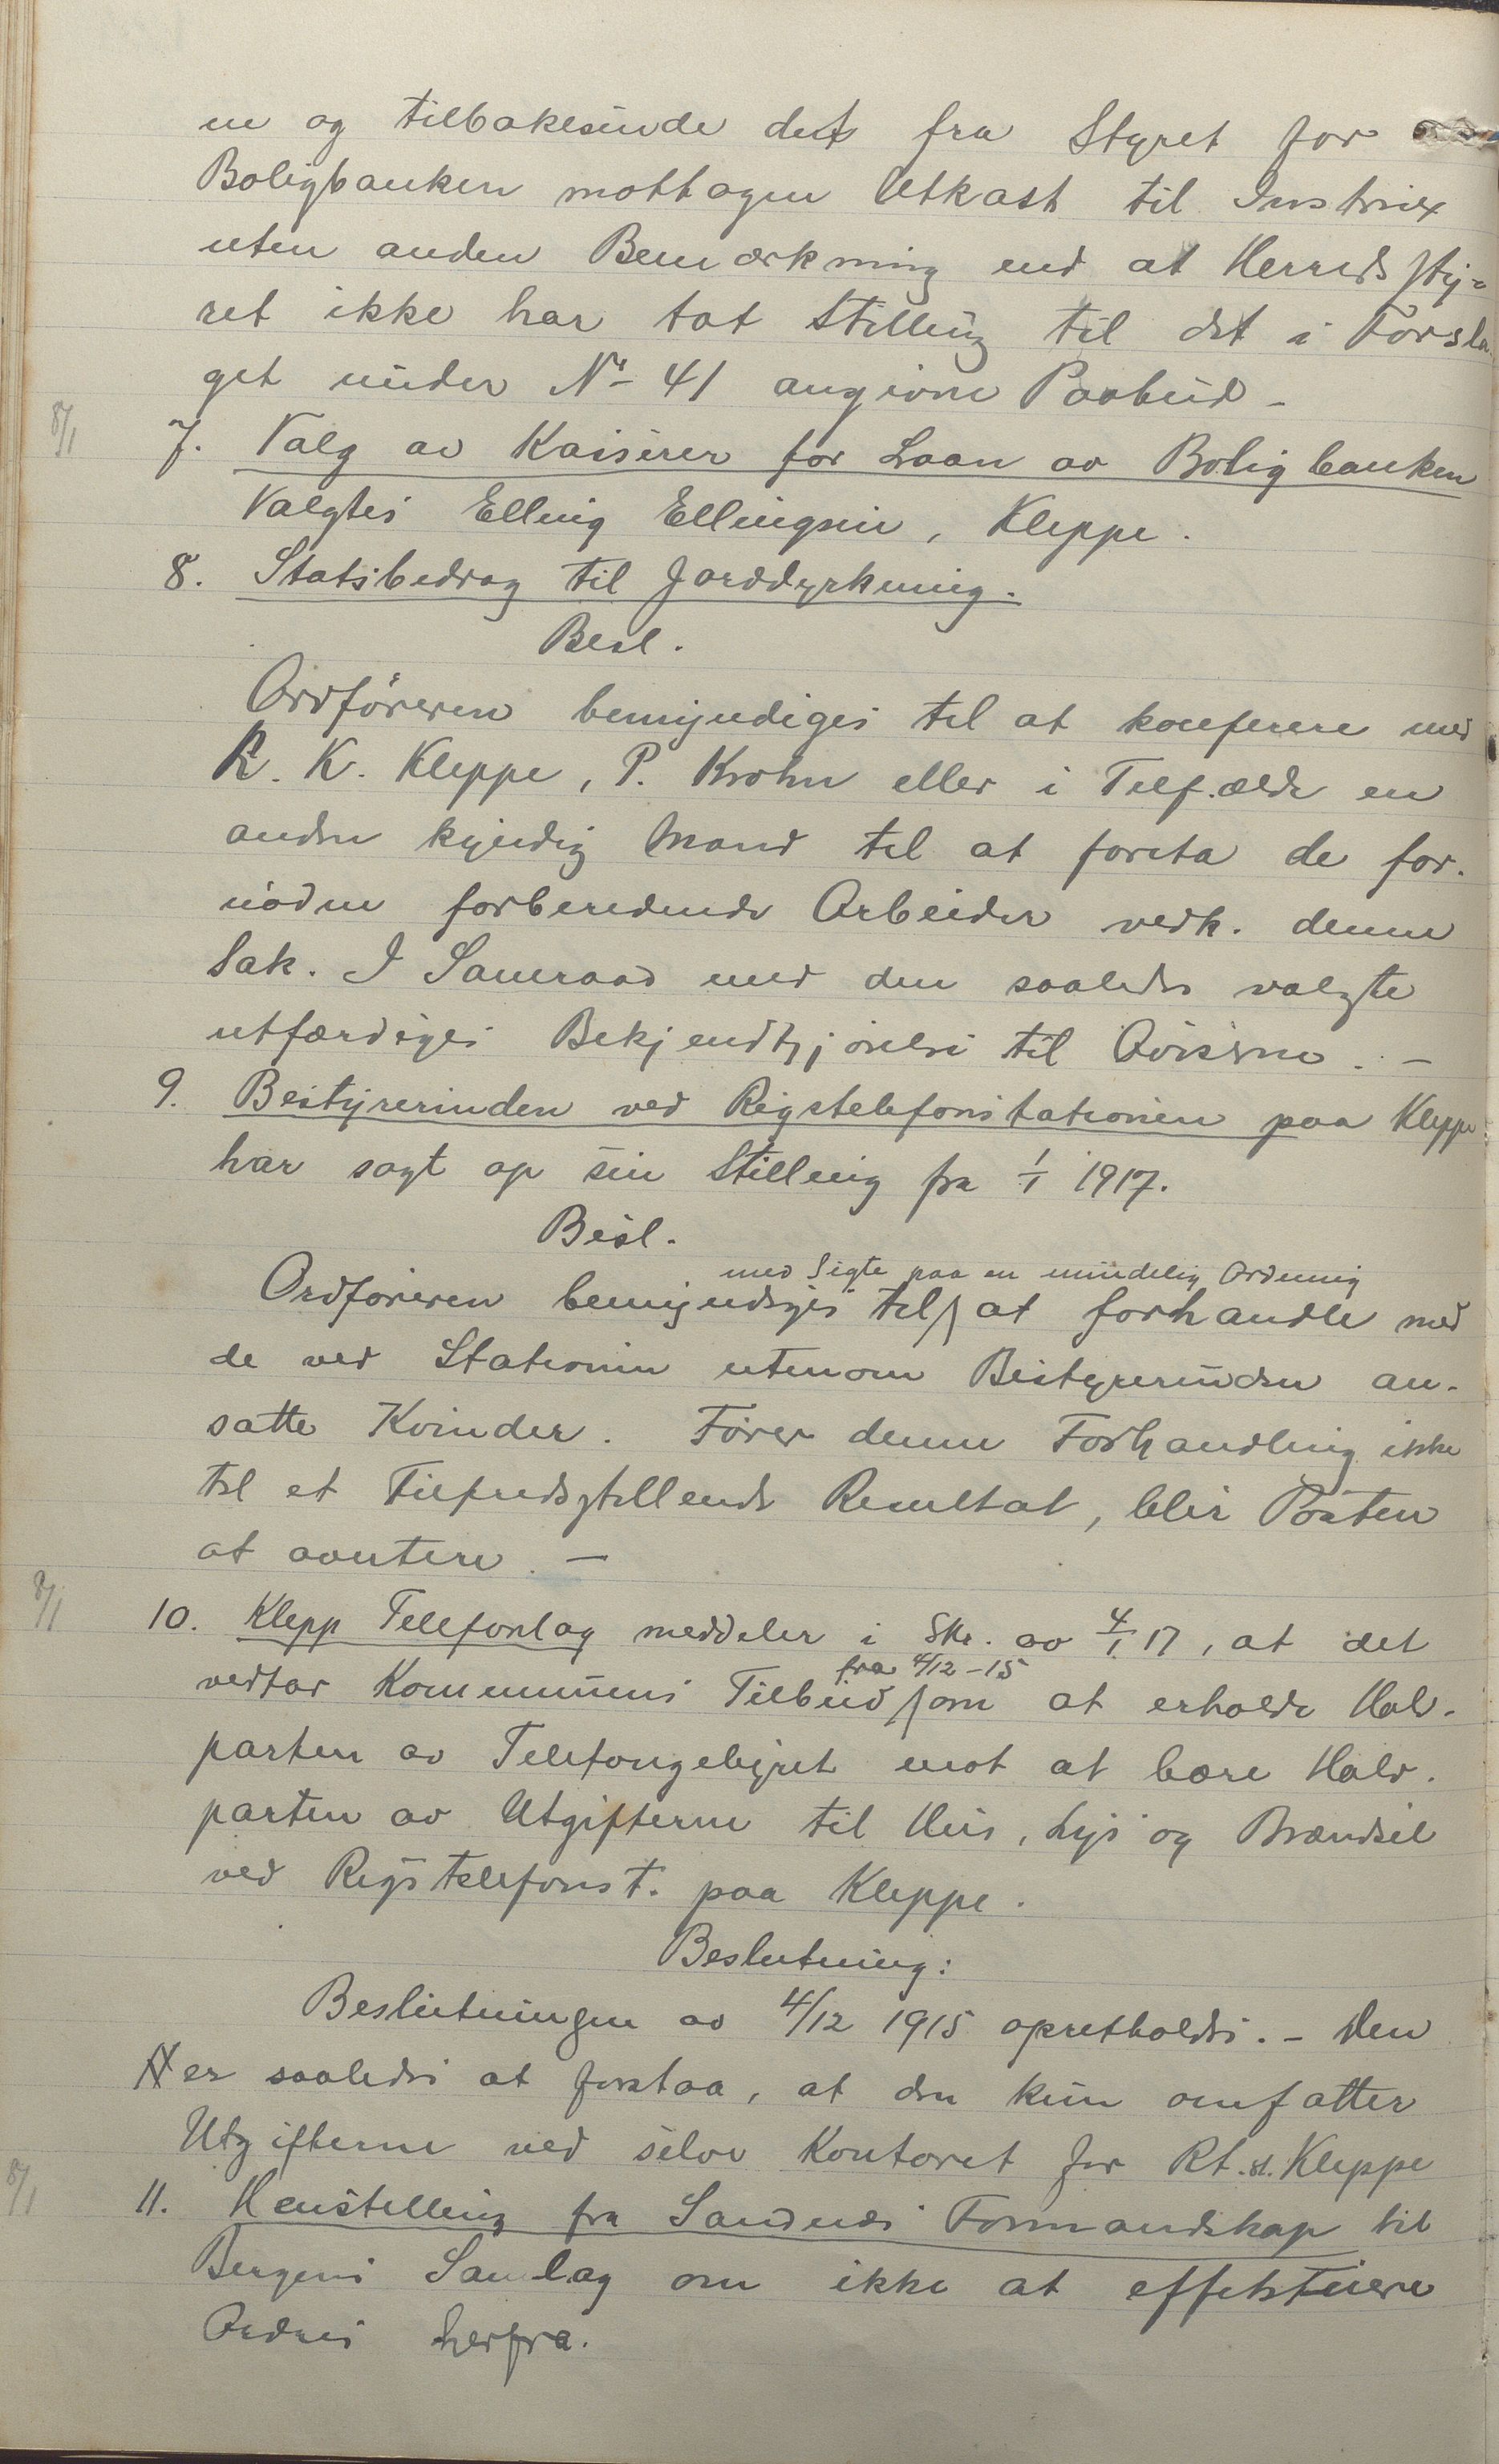 ne og tilbakesende det fra Styret for
Boligbanken mottagne Utkast til Instrux
uten anden Bemærkning end at Herredssty-
ret ikke har tat Stilling til det i Forsla-
get under No 41 angivne Paabud –
8/1 7. Valg av Kasserer for Laan av Boligbanken
Valgtes Elling Ellingsen, Kleppe.
8. Statsbedrag til Jorddyrkning.
Besl.
Ordføreren bemyndiges til at konferere med
R. K. Kleppe, P. Krohn eller i Tilfælde en
anden kyndig Mand til at foreta de for-
nødne forberedende Arbeider vedk. denne
Sak. I Samraad med den saaledes valgte
utfærdiges Bekjendtgjørelse til Aviserne. –
9. Bestyrerinden ved Rigstelefonstationen paa Kleppe
har sagt op sin Stilling fra 1/1 1917.
Besl.
med Sigte paa en mindelig Ordning
Ordføreren bemyndiges til at forhandle med
de ved Stationen utenom Bestyrerinden an-
satte Kvinder. Fører denne Forhandling ikke
til et Tilfredsstillende Resultat, blir Posten
at avertere. –
8/1 10. Klepp Telefonlag meddeler i Skr. av 4/1 17, at det
fra 4/12 – 15
vedtar Kommunens Tilbud om at erholde Halv-
parten av Telefongebyret mot at bære Halv-
parten av Utgifterne til Hus, Lys og Brændsel
ved Rigstelefonst. paa Kleppe.
Beslutning:
Beslutningen av 4/12 1915 opretholdes. – Den
er saaledes at forstaa, at den kun omfatter
Utgifterne ved selve Kontoret for Rt.st. Kleppe
8/1 11. Henstilling fra Sandnes Formandskap til
Bergens Samlag om ikke at effektuere
Ordres herfra.